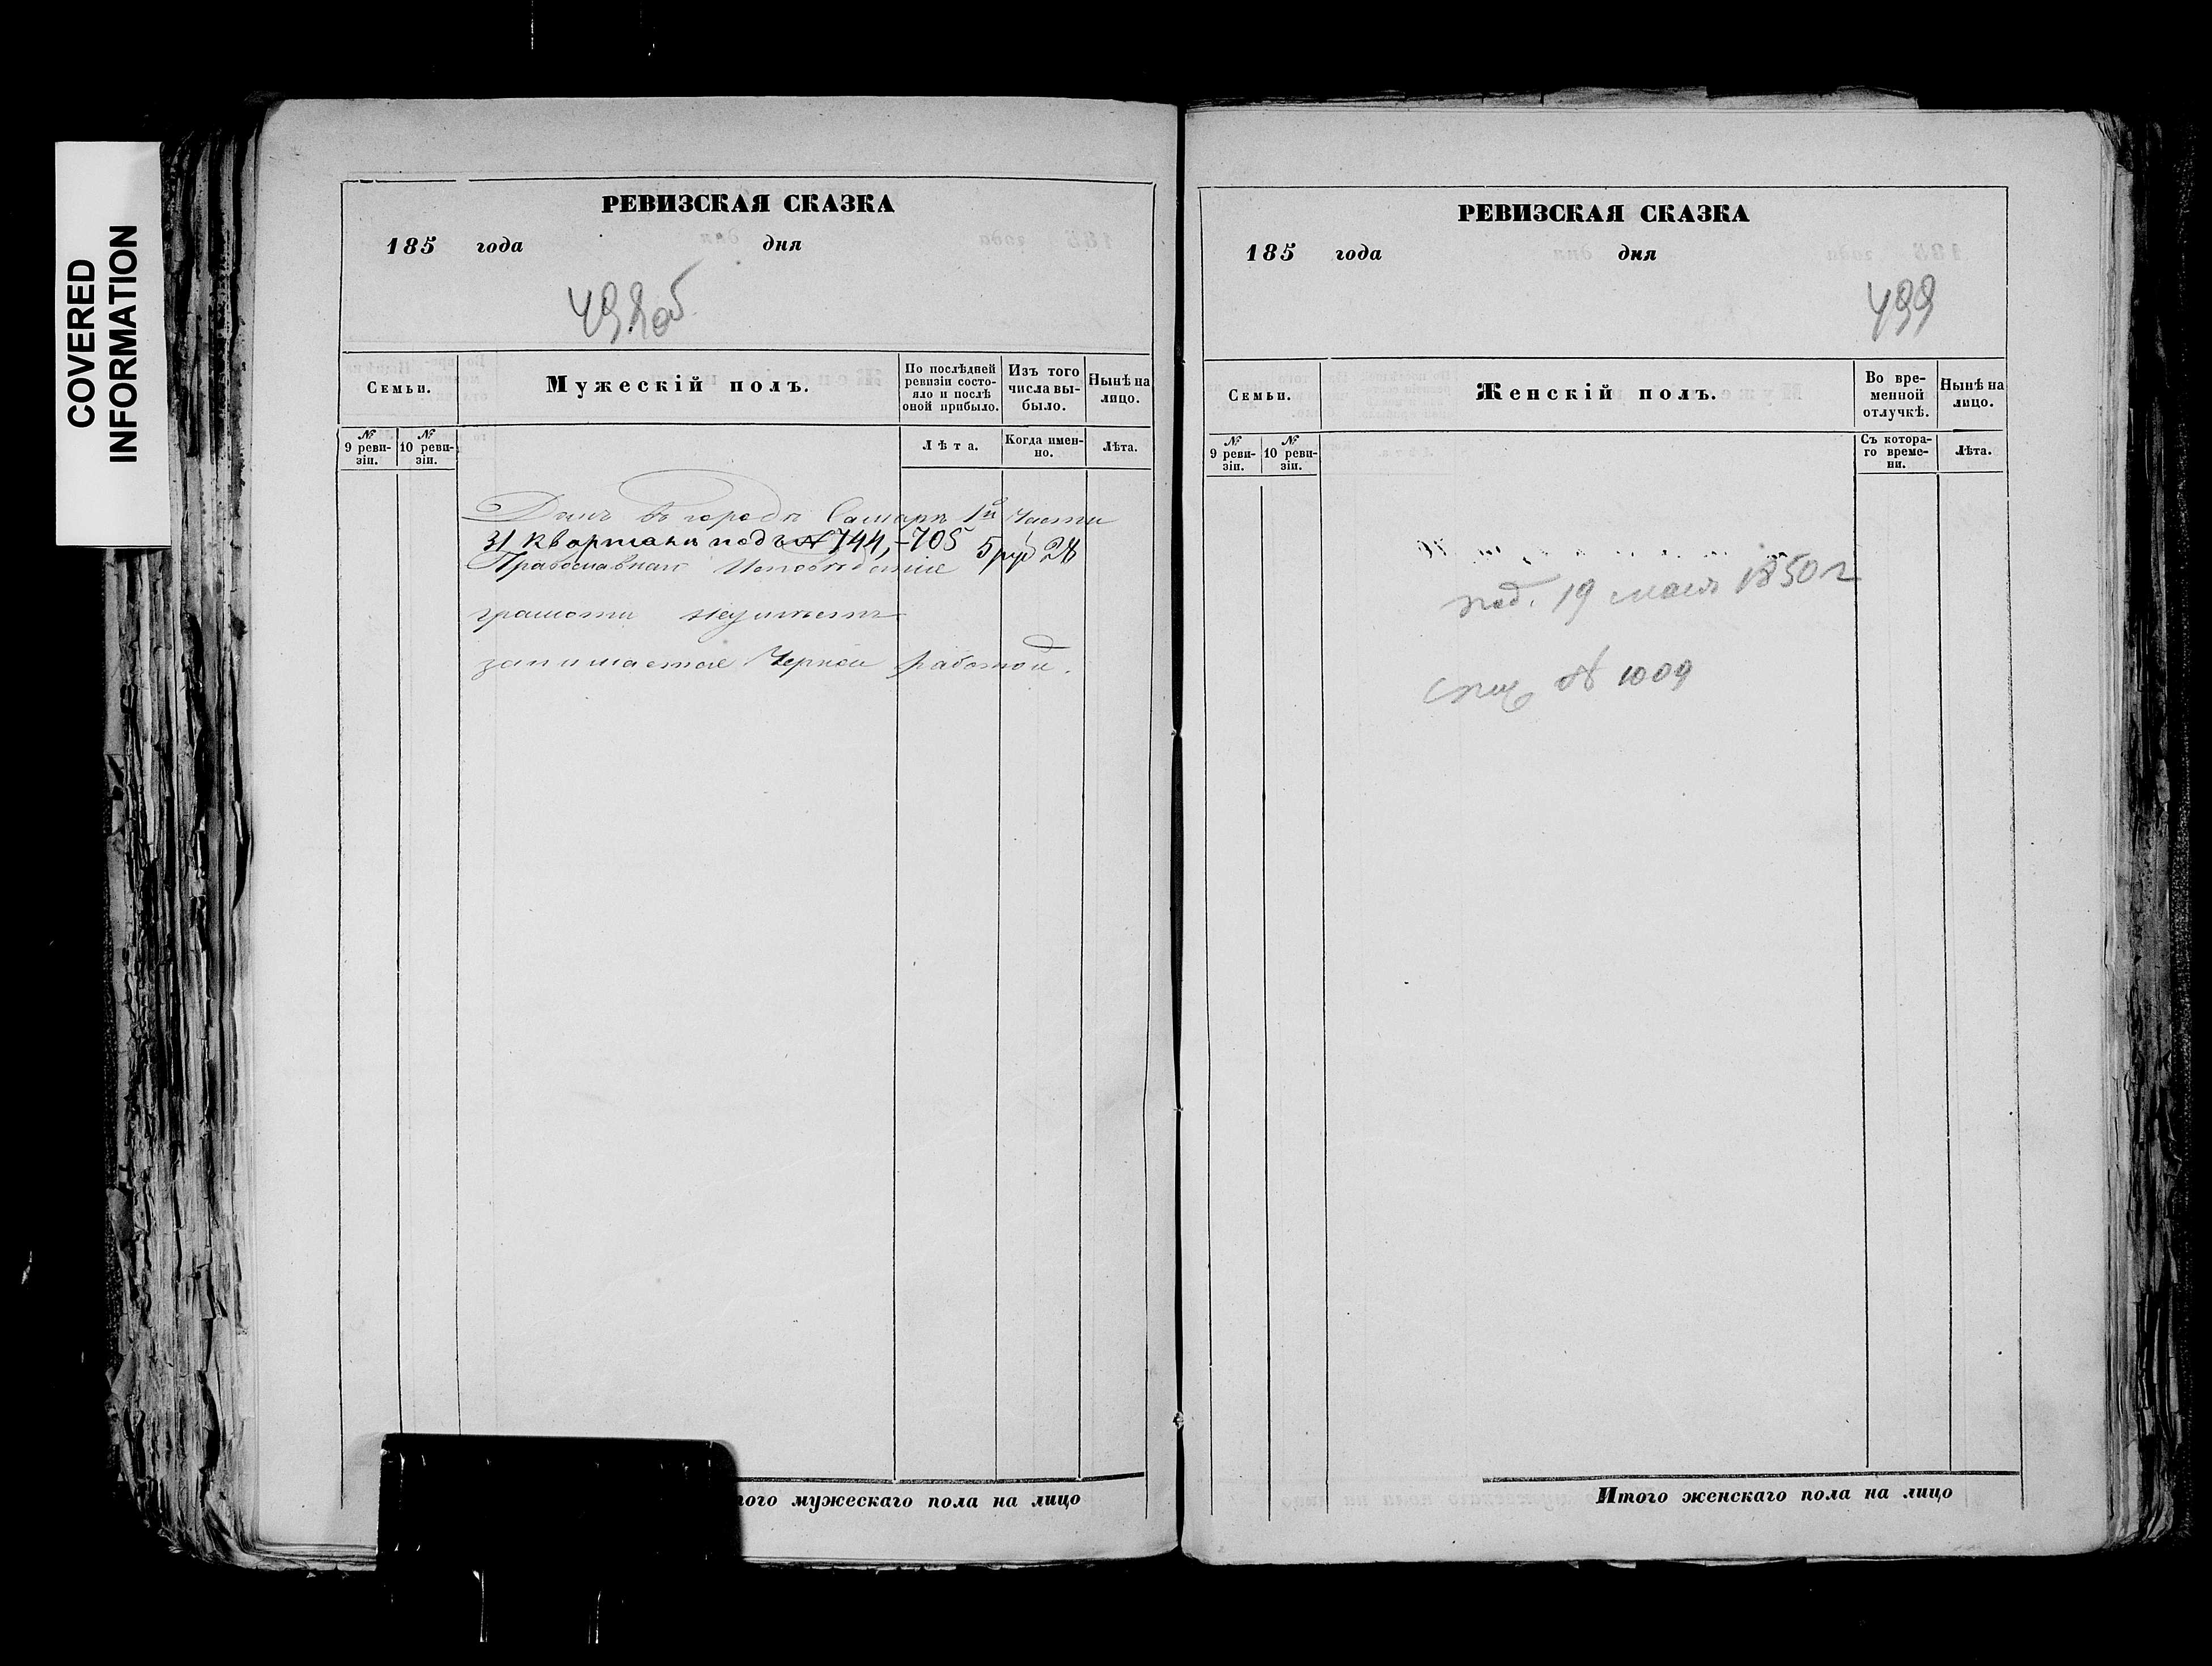 COVERED
INFORMATION
РЕВИЗСКАЯ СКАЗКА
185 года дня
498 об
Семьи.
Мужескій полъ.
По послѣдней
ревизіи состо-
яло и послѣ
оной прибыло.
Изъ того
числа вы-
было.
Нынѣ на
лицо.
№
9 реви-
зіи.
№
10 реви-
зіи.
Лѣта.
Когда имен-
но.
Лѣта.
Домъ въ городѣ Самарѣ 1й Части
31 квартала подъ № 744,-705 5 руб 28
Православнаго Исповѣданія
грамоти неумѣетъ
занимается Черной работой.
того мужескаго пола на лицо
РЕВИЗСКАЯ СКАЗКА
185 года дня
499
Семьи.
Женскій полъ.
Во вре-
менной
отлучкѣ.
Нынѣ на
лицо.
№
9 реви-
зіи.
№
10 реви-
зіи.
Съ котора-
го време-
ни.
Лѣта.
под. 19 мая 1850 г
№ 1009
Итого женскаго пола на лицо